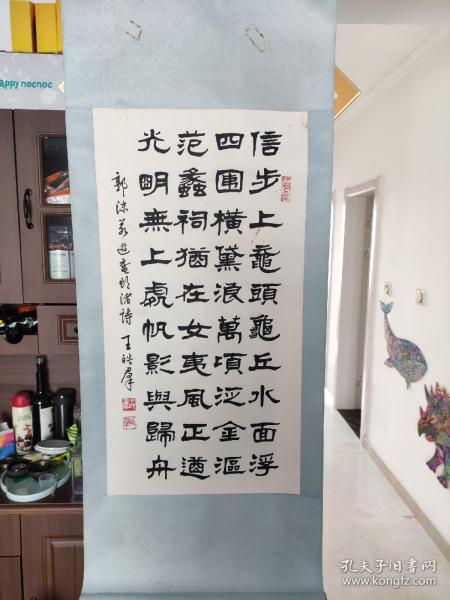 信步上黿頭龜丘水面浮
四圍橫黛浪萬頃泛金漚
范蠡祠猶在女夷風正遒
光明無上處帆影與歸舟
郭沫若遊黿頭渚詩 王皓羣
appy nocnoc
孔夫子旧书网
www.kongfz.com